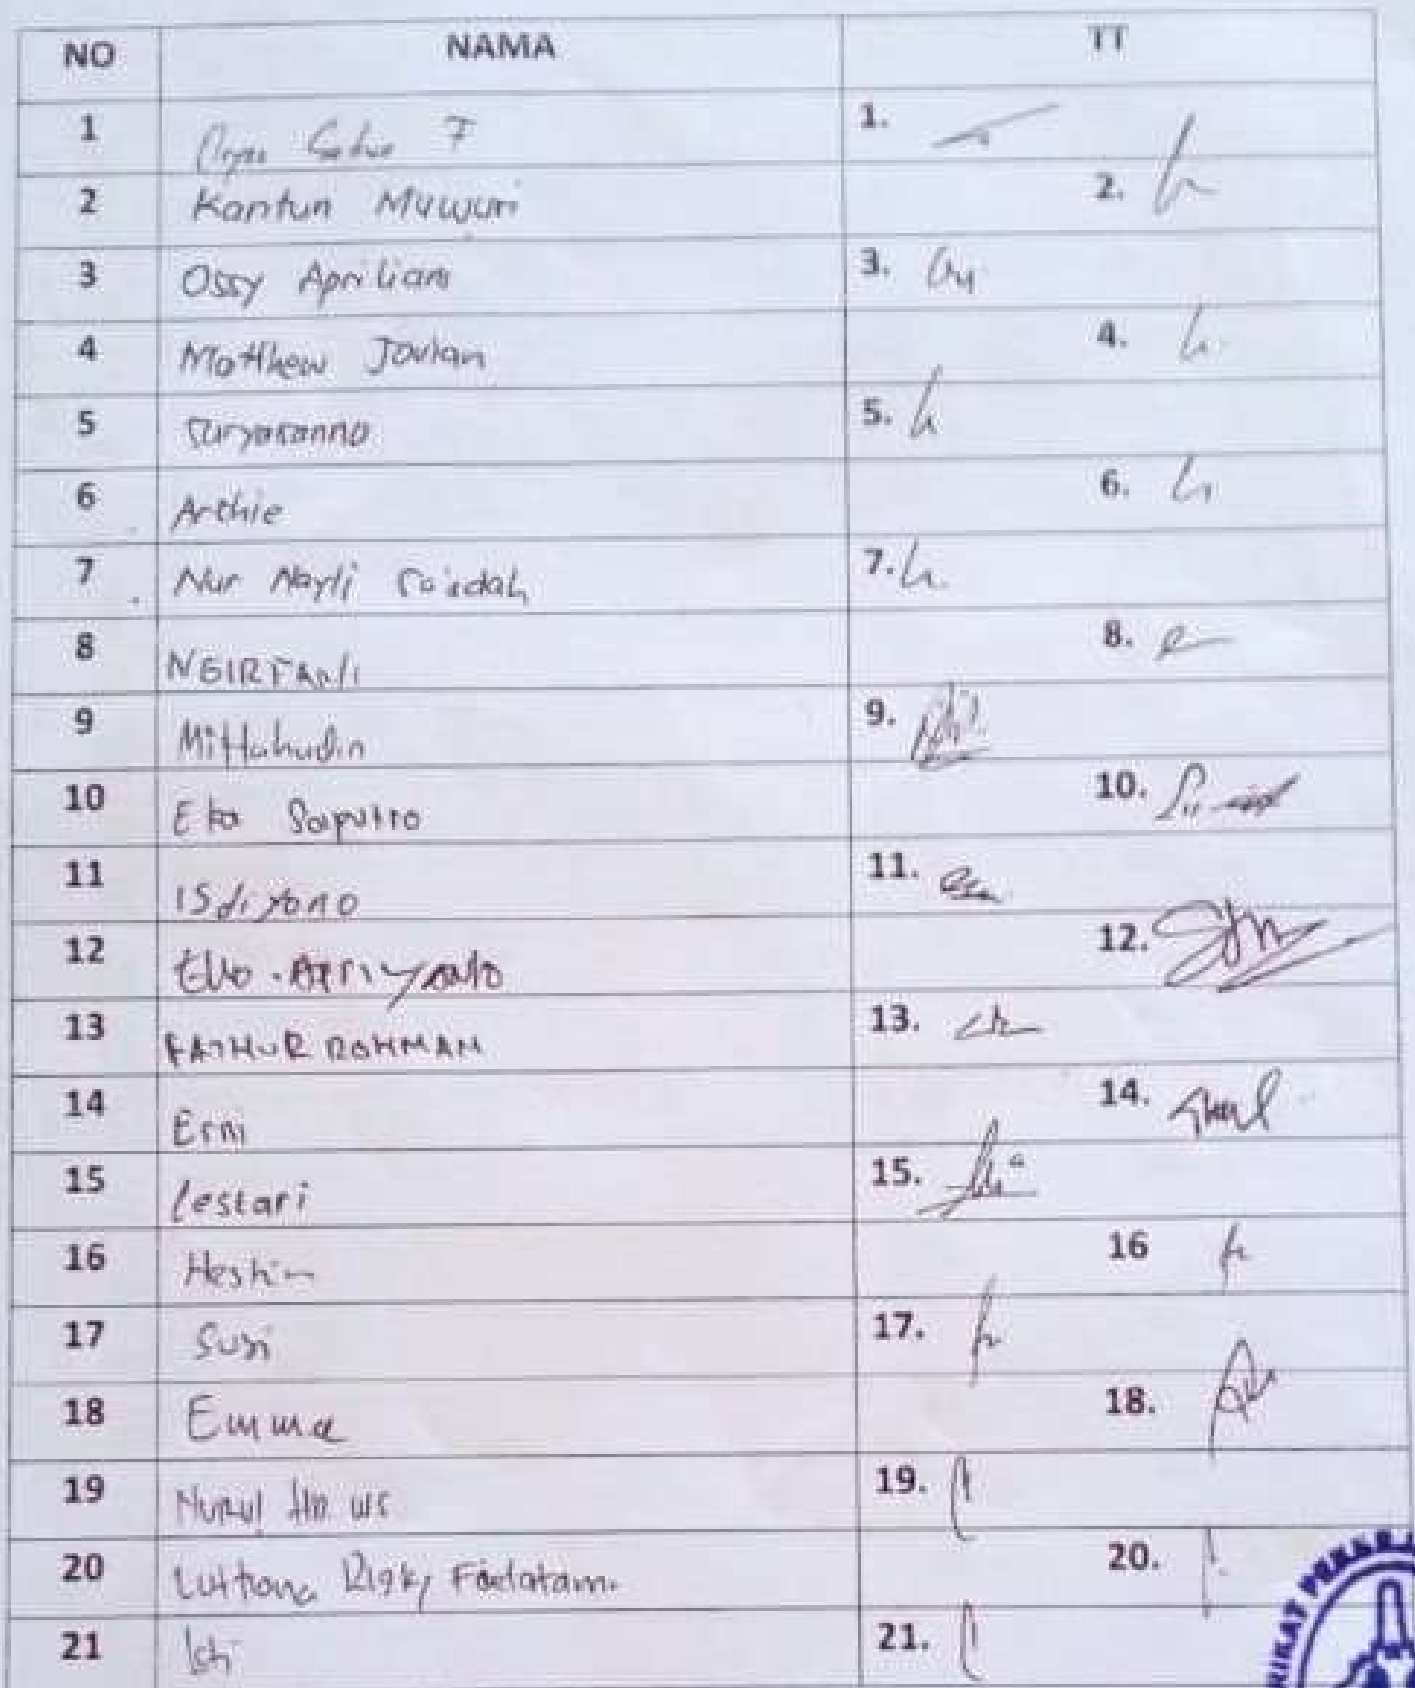 NO NAMA TT
1 1.
2 Kantun Muwuri 2.
3 Ossy Apriliani 3.
4 Matthew Jovian 4.
5 Suryasanno 5.
6 Archie 6.
7 Nur Nayli Sa'adah 7.
8 8.
9 Miftahudin 9.
10 Eka Saputro 10.
11 ISdiyono 11.
12 12.
13 FATHUR ROHMAN 13.
14 Erni 14.
15 Lestari 15.
16 16
17 Susi 17.
18 Emma 18.
19 Nurul 19.
20 Risky 20.
21 Isti 21.